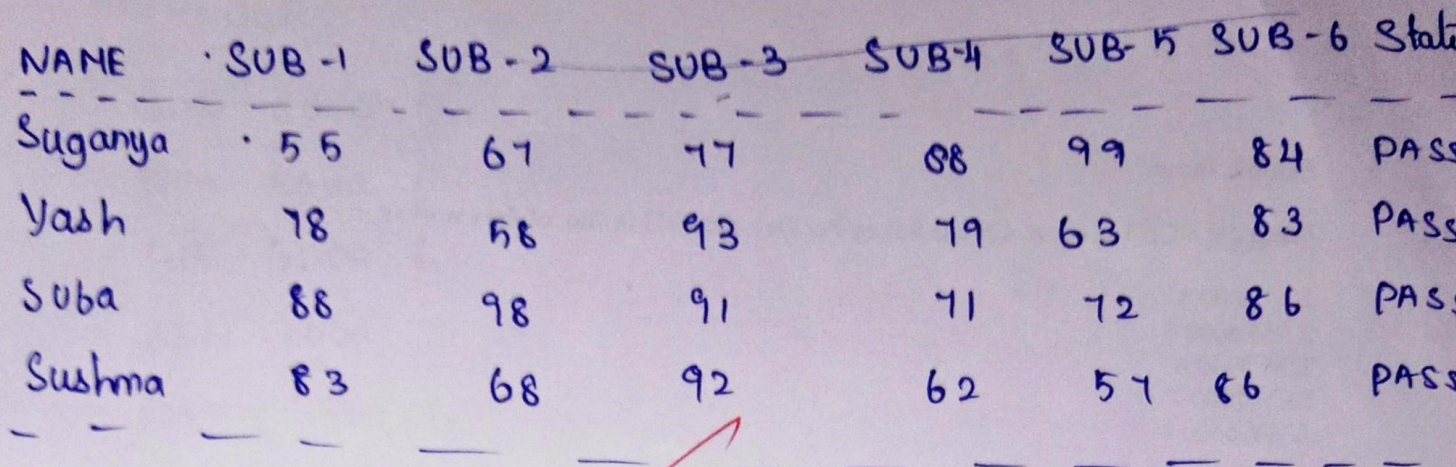 NAME SUB-1 SUB-2 SUB-3 SUB-4 SUB-5 SUB-6 Stat
Suganya 55 67 77 88 99 84 PASS
Yash 78 58 93 79 63 83 PASS
Suba 88 98 91 71 72 86 PAS
Sushma 83 68 92 62 57 86 PASS